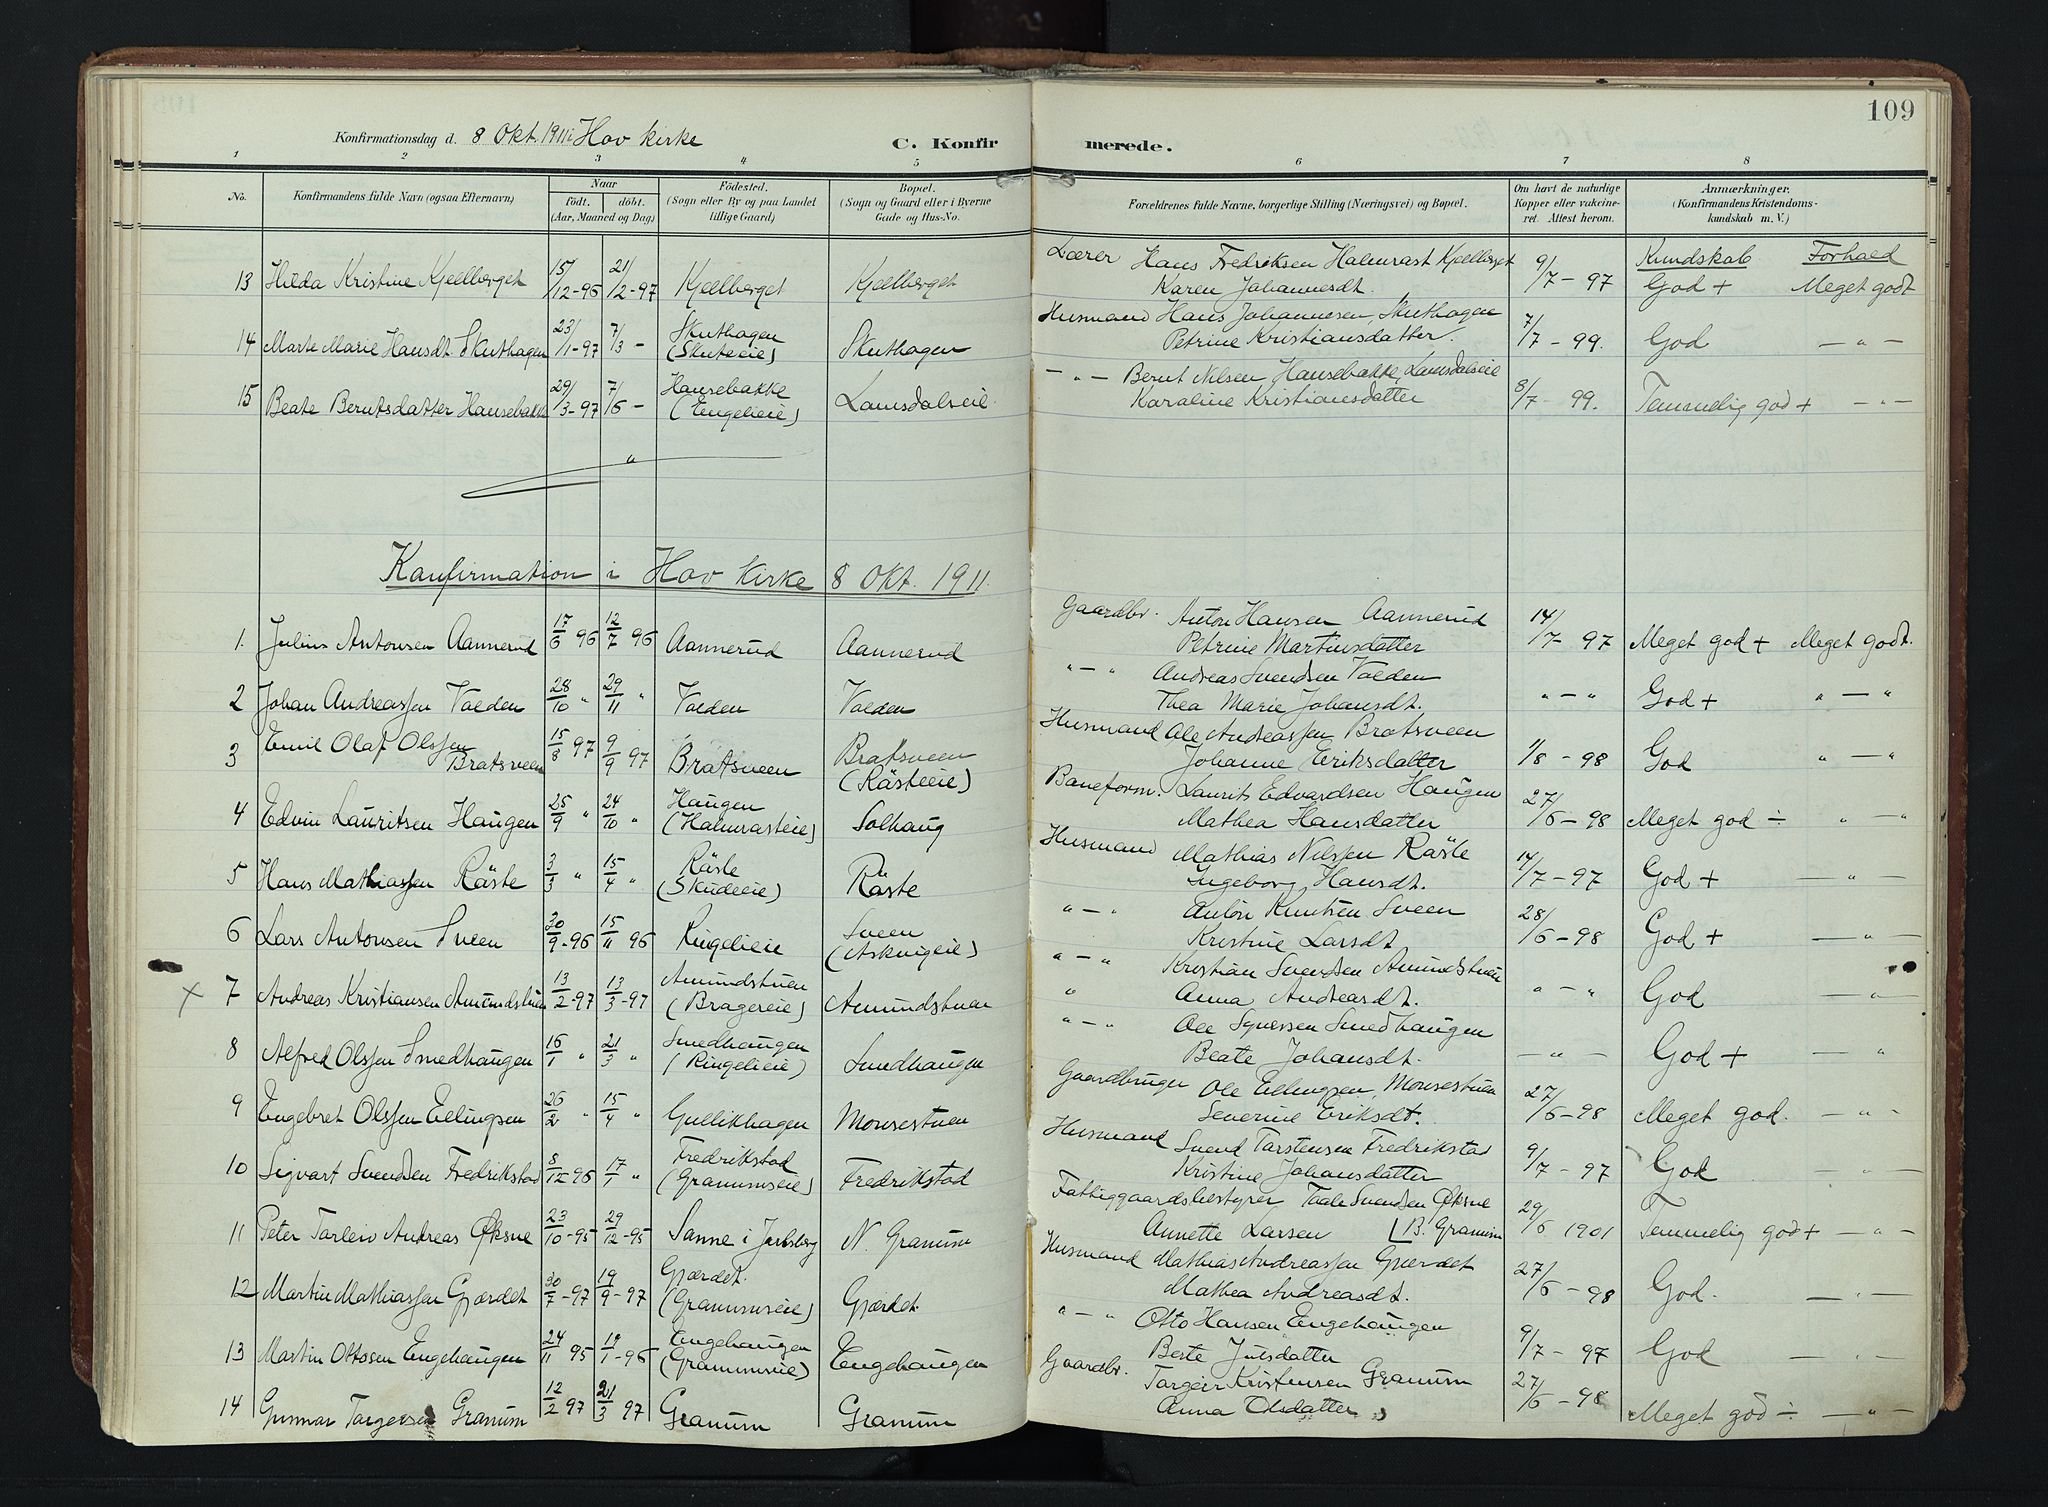 109
Konfirmationsdag d. 8 Okt. 1911 i Hov kirke
C. Konfirmerede.
1 2 3 4 5 6 7 8
No.
Konfirmandens fulde Navn (ogsaa Efternavn)
Naar
födt. döbt.
(Aar, Maaned og Dag)
Födested.
(Sogn eller By og paa Landet
tillige Gaard)
Bopæl.
(Sogn og Gaard eller i Byerne
Gade og Hus-No.
Forældrenes fulde Navne, borgerlige Stilling (Næringsvei) og Bopæl.
Om havt de naturlige
Kopper eller vakcine-
ret. Attest herom.
Anmærkninger.
(Konfirmandens Kristendoms-
kundskab m. V.)
Kundskab Forhold
13 Hilda Kristine Kjellberget 15/12-96 21/2-97 Kjellberget Kjellberget Lærer Hans Fredriksen Halmrast Kjellberget
Karen Johannesdt. 9/7-97 God + Meget godt
14 Marte Marie Hansdt Skuthagen 23/1-97 7/3 - Skuthagen (Skuteeie) Skuthagen Husmand Hans Johannesen, Skuthagen
Petrine Kristiansdatter. 7/7-99. God — " —
15 Beate Berntsdatter Hansebakke 29/3-97 7/6 - Hansebakke (Engelieie) Lamsdalseie — " — Bernt Nilsen Hansebakke, Lamsdalseie
Karaline Kristiansdatter 8/7-99. Temmelig god + — " —
"
Konfirmation i Hov kirke 8 Okt. 1911.
1. Julius Antonsen Aannerud 17/6 96 12/7 96 Aannerud Aannerud Gaardbr. Anton Hansen Aannerud
Petrine Martinsdatter 14/7-97 Meget god + Meget godt.
2 Johan Andreassen Valden 28/10 " 29/11 " Valden Valden " — " Andreas Svendsen Valden
Thea Marie Johansdt. " — " God + " — "
3 Emil Olaf Olssen Bratsveen 15/8 97 9/9 97 Bratsveen Bratsveen (Rästeeie) Husmand Ole Andreassen Bratsveen
Johanne Eriksdatter 1/8-98 God " — "
4 Edvin Lauritsen Haugen 25/9 " 24/10 " Haugen (Halmrasteie) Solhaug Baneform. Laurits Edvardsen Haugen
Mathea Hansdatter 27/6-98 Meget god ÷ " — "
5 Hans Mathiassen Räste 3/3 " 15/4 " Räste (Skudeeie) Räste Husmand Mathias Nilssen Räste
Ingeborg Hansdt. 14/7-97 God + — " —
6 Lars Antonsen Sveen 30/9-96 15/11 96 Ringelieie Sveen (Askvigeie) " — " Anton Knutsen Sveen
Kristine Larsdt 28/6-98 God + — " —
7 Andreas Kristiansen Amundstuen 13/2-97 13/3-97 Amundstuen (Bragereie) Amundstuen " — " Kristian Svendsen Amundstuen
" Anna Andreasdt. " — " God — " —
8 Alfred Olssen Smedhaugen 16/1 " 21/3 " Smedhaugen (Ringelieie) Smedhaugen " — " Ole Syversen Smedhaugen
Beate Johansdt. — " — God + — "
9 Engebret Olssen Ellingsen 26/2 " 15/4 " Gullikhagen Monsestuen Gaardbruger Ole Ellingsen, Monsestuen
Severine Eriksdt. 27/6-98 Meget god. — " —
10 Sigvart Svendsen Fredrikstad 8/12-96 17/1 " Fredrikstad (Granumseie) Fredrikstad Husmand Svend Tarstensen Fredrikstad
Kristine Johansdatter 9/7-97 God — " —
11 Peter Tarleiv Andreas Øksne 23/10-95 29/12-95 Sanne i Jarlsberg N. Granum Fattiggaardsbestyrer Taale Svendsen Øksne
Annette Larsen [B. Granum 29/6 1901 Temmelig god + — " —
12 Martin Mathiassen Gjærdet 30/7-97 19/9-97 Gjærdet. (Granumseie) Gjærdet. Husmand Mathias Andreassen Gjærdet
Mathea Andreasdt. 27/6-98 God. — " —
13 Martin Ottosen Engehaugen 24/11 95 19/1-96 Engehaugen (Granumseie) Engehaugen " — " Otto Hansen Engehaugen
Berte Julsdatter 9/7-97 God — " —
14 Gunnar Targersen Granum 12/2 97 21/3 97 Granum Granum Gaardbr. Targeir Kristensen Granum
Anna Olsdatter 27/6-98 Meget god ÷ — " —